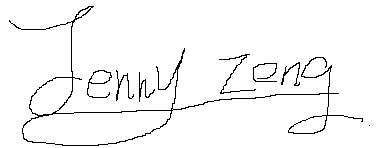 Jenny Zeng